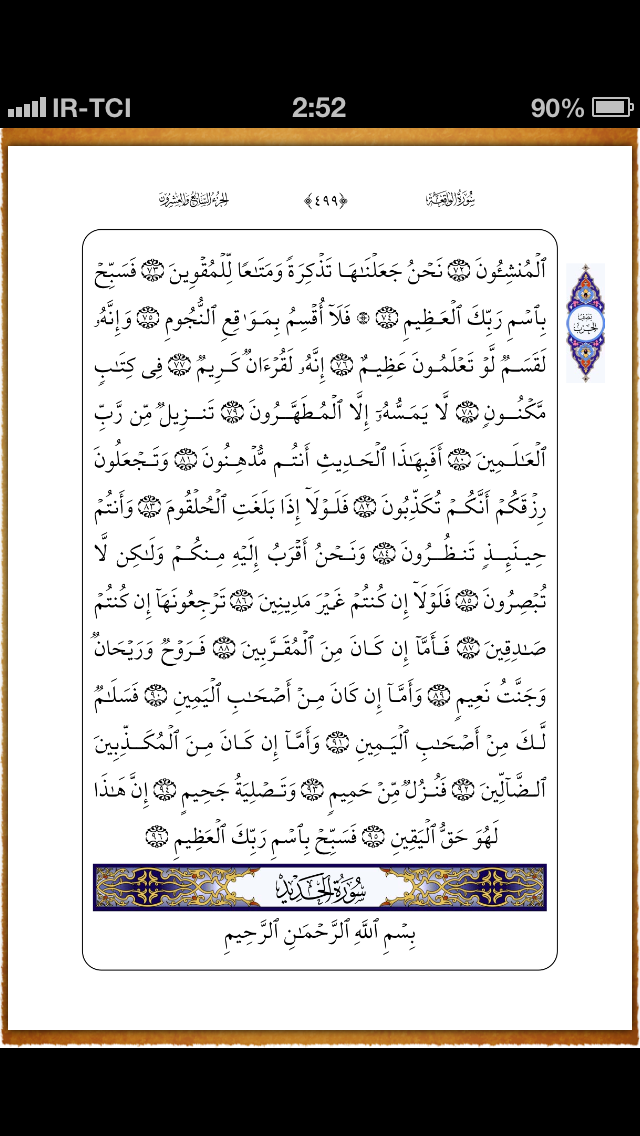 IR-TCI 2:52 90%
سُورَةُ الوَاقِعَة ﴿٤٩٩﴾ الجُزءُ السَّابِعُ وَالعِشرُونَ
ٱلۡمُنشِـُٔونَ ٧٢ نَحۡنُ جَعَلۡنَٰهَا تَذۡكِرَةٗ وَمَتَٰعٗا لِّلۡمُقۡوِينَ ٧٣ فَسَبِّحۡ
بِٱسۡمِ رَبِّكَ ٱلۡعَظِيمِ ٧٤ ۞ فَلَآ أُقۡسِمُ بِمَوَٰقِعِ ٱلنُّجُومِ ٧٥ وَإِنَّهُۥ
لَقَسَمٞ لَّوۡ تَعۡلَمُونَ عَظِيمٌ ٧٦ إِنَّهُۥ لَقُرۡءَانٞ كَرِيمٞ ٧٧ فِي كِتَٰبٖ
مَّكۡنُونٖ ٧٨ لَّا يَمَسُّهُۥٓ إِلَّا ٱلۡمُطَهَّرُونَ ٧٩ تَنزِيلٞ مِّن رَّبِّ
ٱلۡعَٰلَمِينَ ٨٠ أَفَبِهَٰذَا ٱلۡحَدِيثِ أَنتُم مُّدۡهِنُونَ ٨١ وَتَجۡعَلُونَ
رِزۡقَكُمۡ أَنَّكُمۡ تُكَذِّبُونَ ٨٢ فَلَوۡلَآ إِذَا بَلَغَتِ ٱلۡحُلۡقُومَ ٨٣ وَأَنتُمۡ
حِينَئِذٖ تَنظُرُونَ ٨٤ وَنَحۡنُ أَقۡرَبُ إِلَيۡهِ مِنكُمۡ وَلَٰكِن لَّا
تُبۡصِرُونَ ٨٥ فَلَوۡلَآ إِن كُنتُمۡ غَيۡرَ مَدِينِينَ ٨٦ تَرۡجِعُونَهَآ إِن كُنتُمۡ
صَٰدِقِينَ ٨٧ فَأَمَّآ إِن كَانَ مِنَ ٱلۡمُقَرَّبِينَ ٨٨ فَرَوۡحٞ وَرَيۡحَانٞ
وَجَنَّتُ نَعِيمٖ ٨٩ وَأَمَّآ إِن كَانَ مِنۡ أَصۡحَٰبِ ٱلۡيَمِينِ ٩٠ فَسَلَٰمٞ
لَّكَ مِنۡ أَصۡحَٰبِ ٱلۡيَمِينِ ٩١ وَأَمَّآ إِن كَانَ مِنَ ٱلۡمُكَذِّبِينَ
ٱلضَّآلِّينَ ٩٢ فَنُزُلٞ مِّنۡ حَمِيمٖ ٩٣ وَتَصۡلِيَةُ جَحِيمٍ ٩٤ إِنَّ هَٰذَا
لَهُوَ حَقُّ ٱلۡيَقِينِ ٩٥ فَسَبِّحۡ بِٱسۡمِ رَبِّكَ ٱلۡعَظِيمِ ٩٦
سُورَةُ الحَدِيدِ
بِسۡمِ ٱللَّهِ ٱلرَّحۡمَٰنِ ٱلرَّحِيمِ
نِصْفُ
الحِزْب